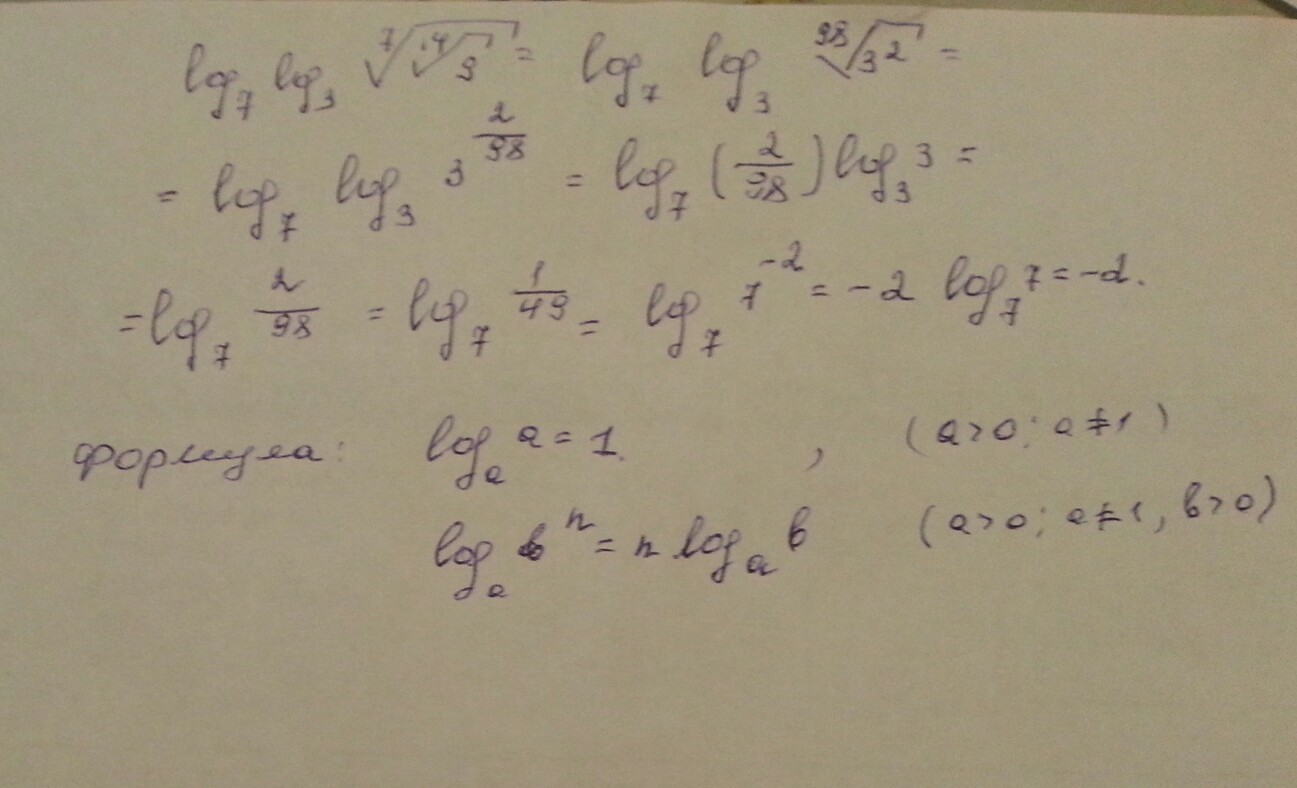 log₇ log₃ ⁷√(¹⁴√9) = log₇ log₃ ⁹⁸√(3²) =
= log₇ log₃ 3^(2/98) = log₇ (2/98) log₃ 3 =
= log₇ 2/98 = log₇ 1/49 = log₇ 7⁻² = -2 log₇ 7 = -2.
формула: logₐ a = 1. , (a>0; a≠1)
logₐ вⁿ = n logₐ в (a>0; a≠1, в>0)